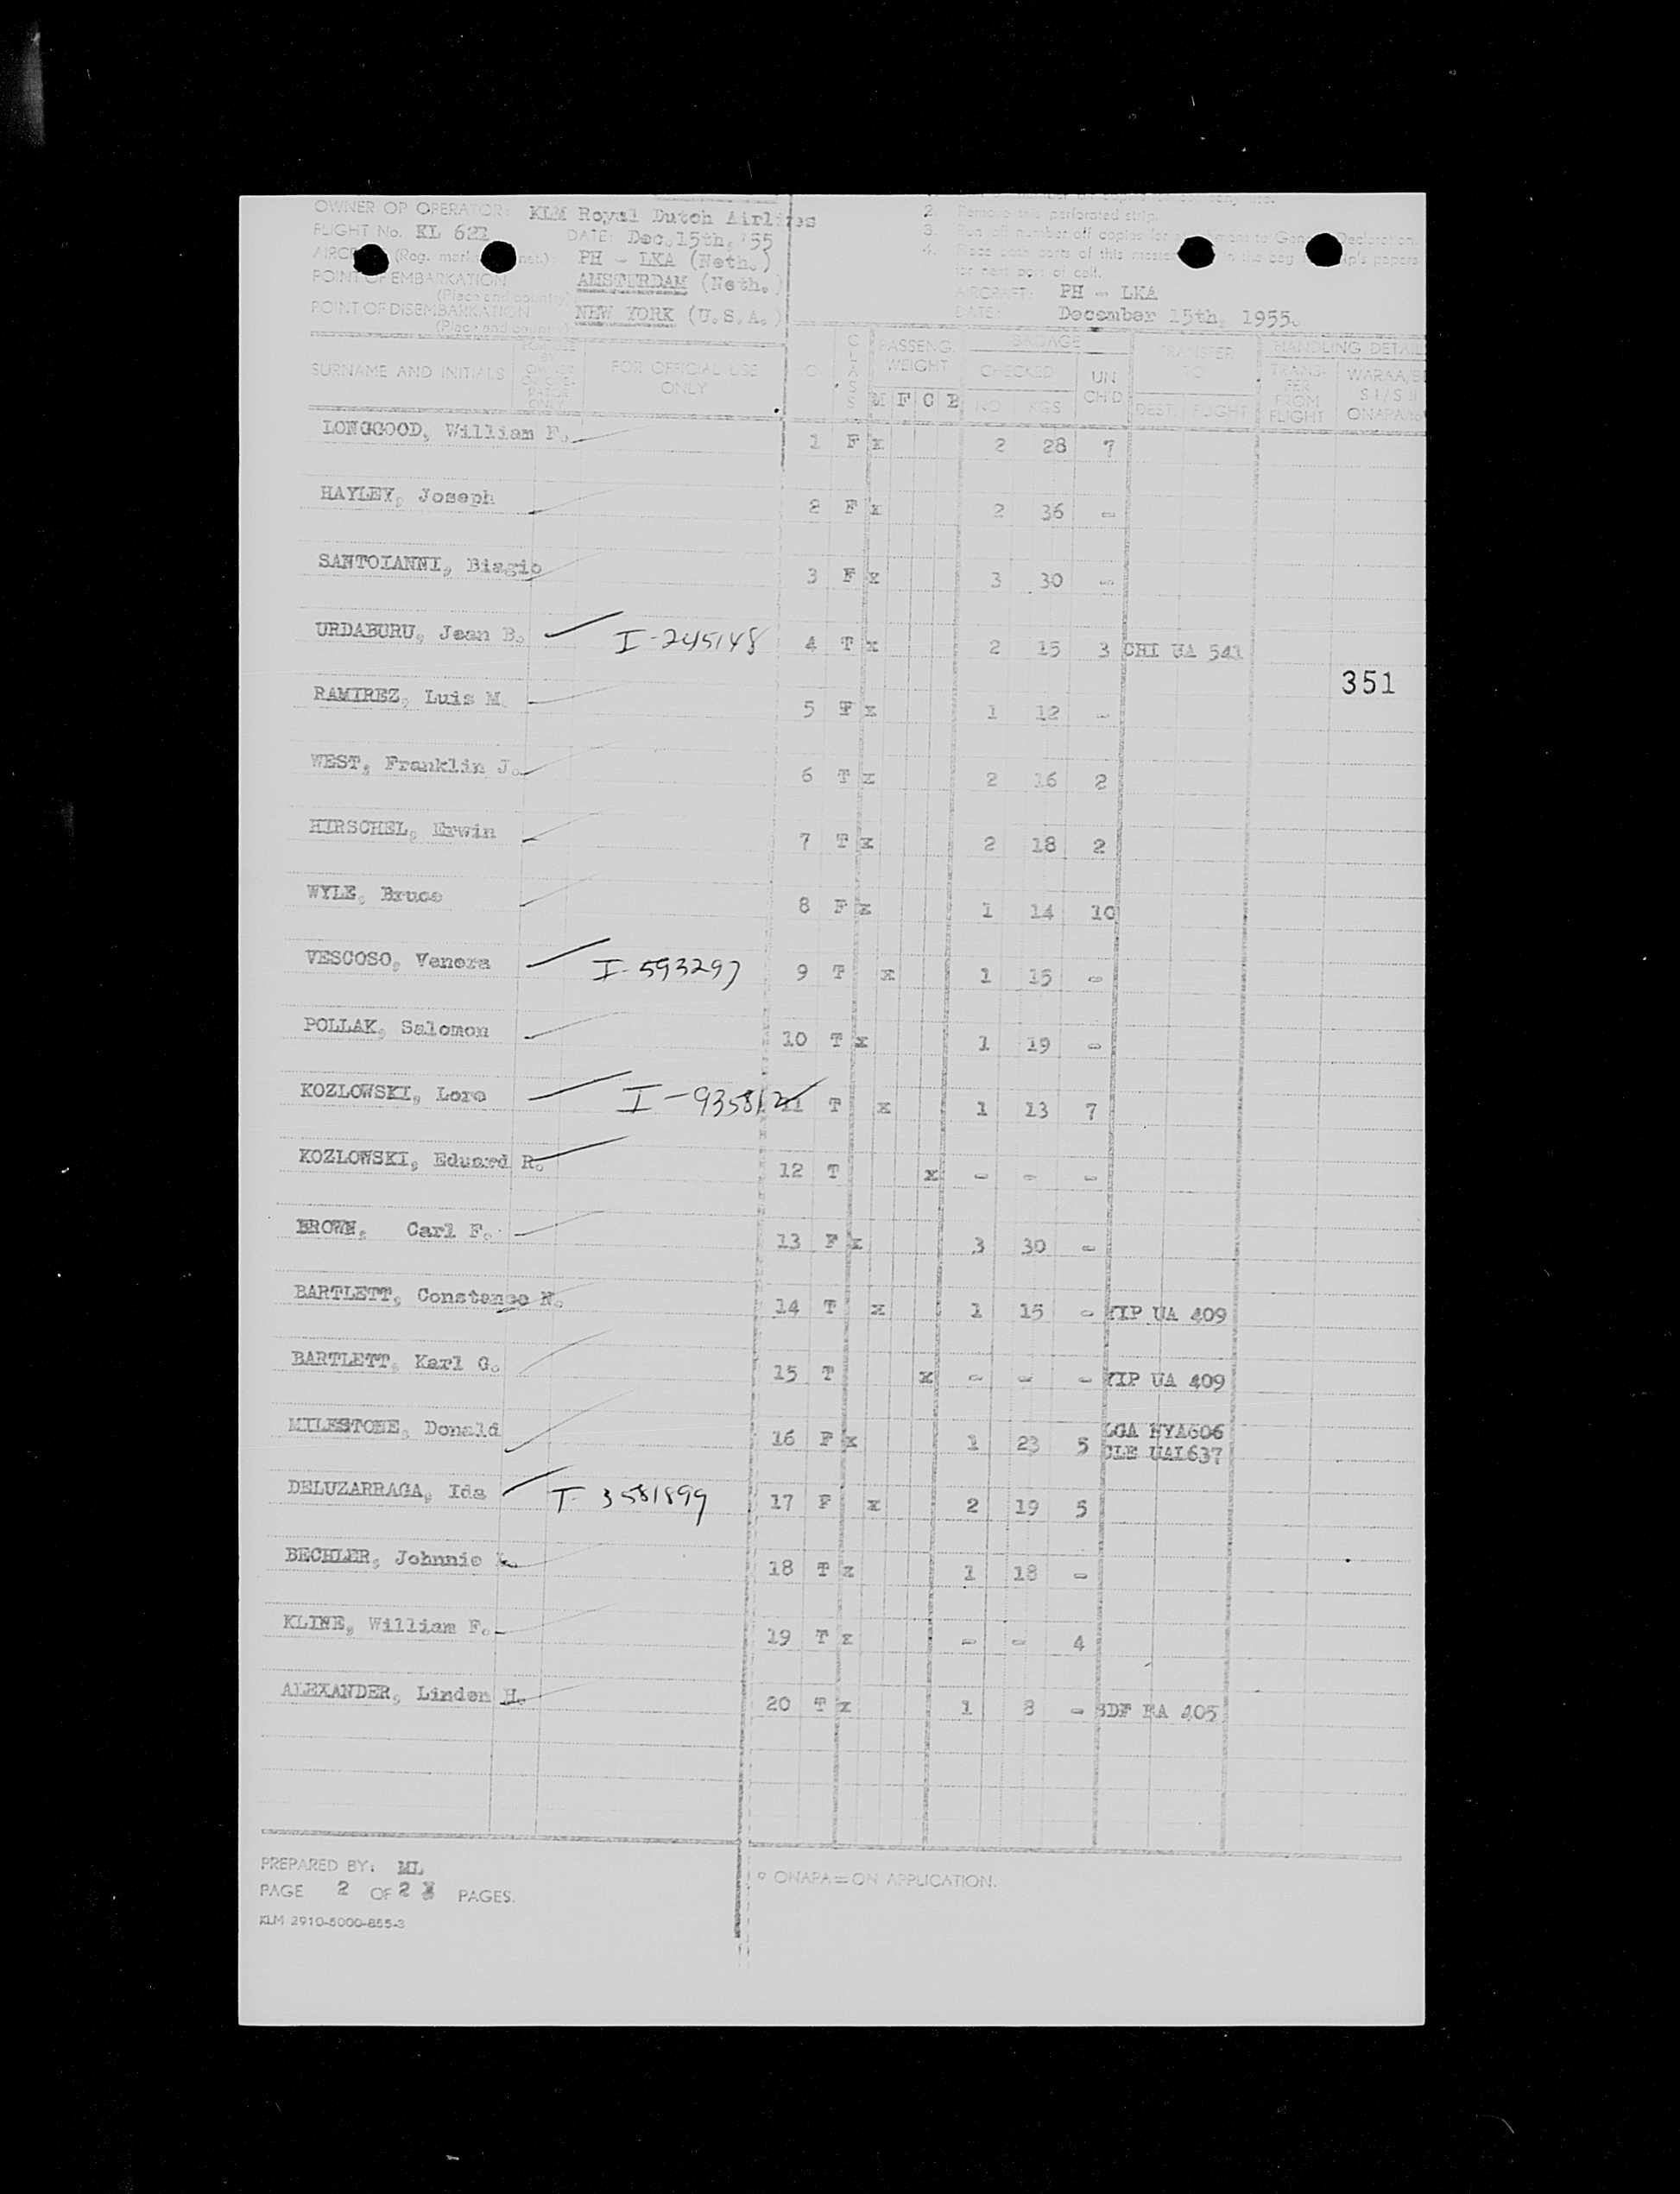 OWNER OP OPERATOR: KLM Royal Dutch Airlines
FLIGHT No. KL 621 DATE: Dec. 15th, '55
(Reg. mark PH - LKA (Neth.)
POINT OF EMBARKATION AMSTERDAM (Neth.)
(Place and country)
POINT OF DISEMBARKATION NEW YORK (U.S.A.)
(Place and country)
2. Remove this perforated strip.
3. number off copies for to Declaration.
4. parts of this in the bag papers
for next port of call.
AIRCRAFT: PH - LKA
DATE: December 15th, 1955.
SURNAME AND INITIALS FOR OFFICIAL USE ONLY CLASS PASSENG. WEIGHT M F C B BAGAGE CHECKED NO KGS UN CH'D TRANSFER TO DEST. FLIGHT HANDLING DETAIL TRANSFER FROM FLIGHT
LONGGOOD, William F. 1 F x 2 28 7
HAYLEY, Joseph 2 F x 2 36 -
SANTOIANNI, Biagio 3 F x 3 30 -
URDABURU, Jean B. I-245148 4 T x 2 15 3 CHI UA 541
351
RAMIREZ, Luis M. 5 x 1 12 -
WEST, Franklin J. 6 T x 2 16 2
HIRSCHEL, Erwin 7 T x 2 18 2
WYLE, Bruce 8 F x 1 14 10
VESCOSO, Venera I-593297 9 T x 1 15 -
POLLAK, Salomon 10 T x 1 19 -
KOZLOWSKI, Lore I-935812 11 T x 1 13 7
KOZLOWSKI, Eduard R. 12 T x - - -
BROWN, Carl F. 13 F x 3 30 -
BARTLETT, Constance N. 14 T x 1 15 - YIP UA 409
BARTLETT, Karl G. 15 T x - - - YIP UA 409
MILESTONE, Donald 16 F x 1 23 5 LGA NYA606
CLE UAL637
DELUZARRAGA, Ida T-3581899 17 F x 2 19 5
BECHLER, Johnnie 18 T x 1 18 -
KLINE, William F. 19 T x - - 4
ALEXANDER, Linden H. 20 T x 1 8 - SDF EA 405
PREPARED BY: ML
PAGE 2 OF 2 PAGES.
ONAPA = ON APPLICATION.
KLM 2910-5000-855-3